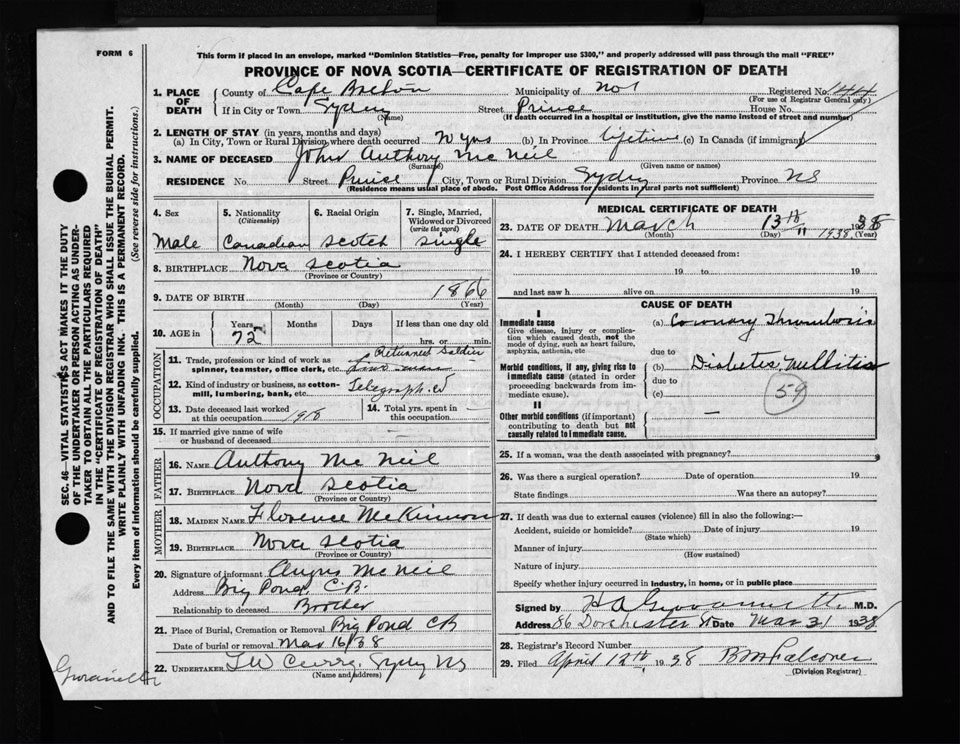 FORM 6
This form if placed in an envelope, marked "Dominion Statistics—Free, penalty for improper use $300," and properly addressed will pass through the mail "FREE"
PROVINCE OF NOVA SCOTIA—CERTIFICATE OF REGISTRATION OF DEATH
1. PLACE OF DEATH
County of Cape Breton Municipality of No 1 Registered No. 144
(For use of Registrar General only)
If in City or Town Sydney Street Prince House No.
(Name) (If death occurred in a hospital or institution, give the name instead of street and number)
2. LENGTH OF STAY (in years, months and days)
(a) In City, Town or Rural Division where death occurred 20 yrs (b) In Province lifetime (c) In Canada (if immigrant)
3. NAME OF DECEASED John Anthony Mc Neil
(Surname) (Given name or names)
RESIDENCE No. Street Prince City, Town or Rural Division Sydney Province NS
(Residence means usual place of abode. Post Office Address for residents in rural parts not sufficient)
4. Sex
Male
5. Nationality
(Citizenship)
Canadian
6. Racial Origin
Scotch
7. Single, Married, Widowed or Divorced
(write the word)
Single
8. BIRTHPLACE Nova Scotia
(Province or Country)
9. DATE OF BIRTH 1866
(Month) (Day) (Year)
10. AGE in
Years Months Days If less than one day old
72 hrs. or min.
OCCUPATION
11. Trade, profession or kind of work as spinner, teamster, office clerk, etc. Returned Soldier
12. Kind of industry or business, as cotton-mill, lumbering, bank, etc. Telegraph
13. Date deceased last worked at this occupation 1918
14. Total yrs. spent in this occupation
15. If married give name of wife or husband of deceased —
FATHER
16. NAME Anthony Mc Neil
17. BIRTHPLACE Nova Scotia
(Province or Country)
MOTHER
18. MAIDEN NAME Florence McKinnon
19. BIRTHPLACE Nova Scotia
(Province or Country)
20. Signature of informant Angus Mc Neil
Address Big Pond, C.B.
Relationship to deceased Brother
21. Place of Burial, Cremation or Removal Big Pond CB
Date of burial or removal Mar 16/38
22. UNDERTAKER Sydney NS
(Name and address)
MEDICAL CERTIFICATE OF DEATH
23. DATE OF DEATH March 13th 1938
(Month) (Day) (Year)
24. I HEREBY CERTIFY that I attended deceased from:
19 to 19
and last saw h alive on 19
CAUSE OF DEATH
I
Immediate cause
Give disease, injury or complication which caused death, not the mode of dying, such as heart failure, asphyxia, asthenia, etc
(a) Coronary Thrombosis
due to
Morbid conditions, if any, giving rise to immediate cause (stated in order proceeding backwards from immediate cause).
(b) Diabetes Mellitus
due to
(c)
59
II
Other morbid conditions (if important) contributing to death but not causally related to immediate cause.
—
25. If a woman, was the death associated with pregnancy?
26. Was there a surgical operation? Date of operation 19
State findings Was there an autopsy?
27. If death was due to external causes (violence) fill in also the following:—
Accident, suicide or homicide? Date of injury 19
(State which)
Manner of injury
(How sustained)
Nature of injury
Specify whether injury occurred in industry, in home, or in public place
Signed by H A Giovannetti M.D.
Address 86 Dorchester St Date Mar 31 1938
28. Registrar's Record Number
29. Filed April 12th 1938 B M Falconer
(Division Registrar)
Giovanetti
SEC. 46—VITAL STATISTICS ACT MAKES IT THE DUTY
OF THE UNDERTAKER OR PERSON ACTING AS UNDER-
TAKER TO OBTAIN ALL THE PARTICULARS REQUIRED
IN THE "CERTIFICATE OF REGISTRATION OF DEATH"
AND TO FILE THE SAME WITH THE DIVISION REGISTRAR WHO SHALL ISSUE THE BURIAL PERMIT.
WRITE PLAINLY WITH UNFADING INK. THIS IS A PERMANENT RECORD.
Every item of information should be carefully supplied. (See reverse side for instructions.)